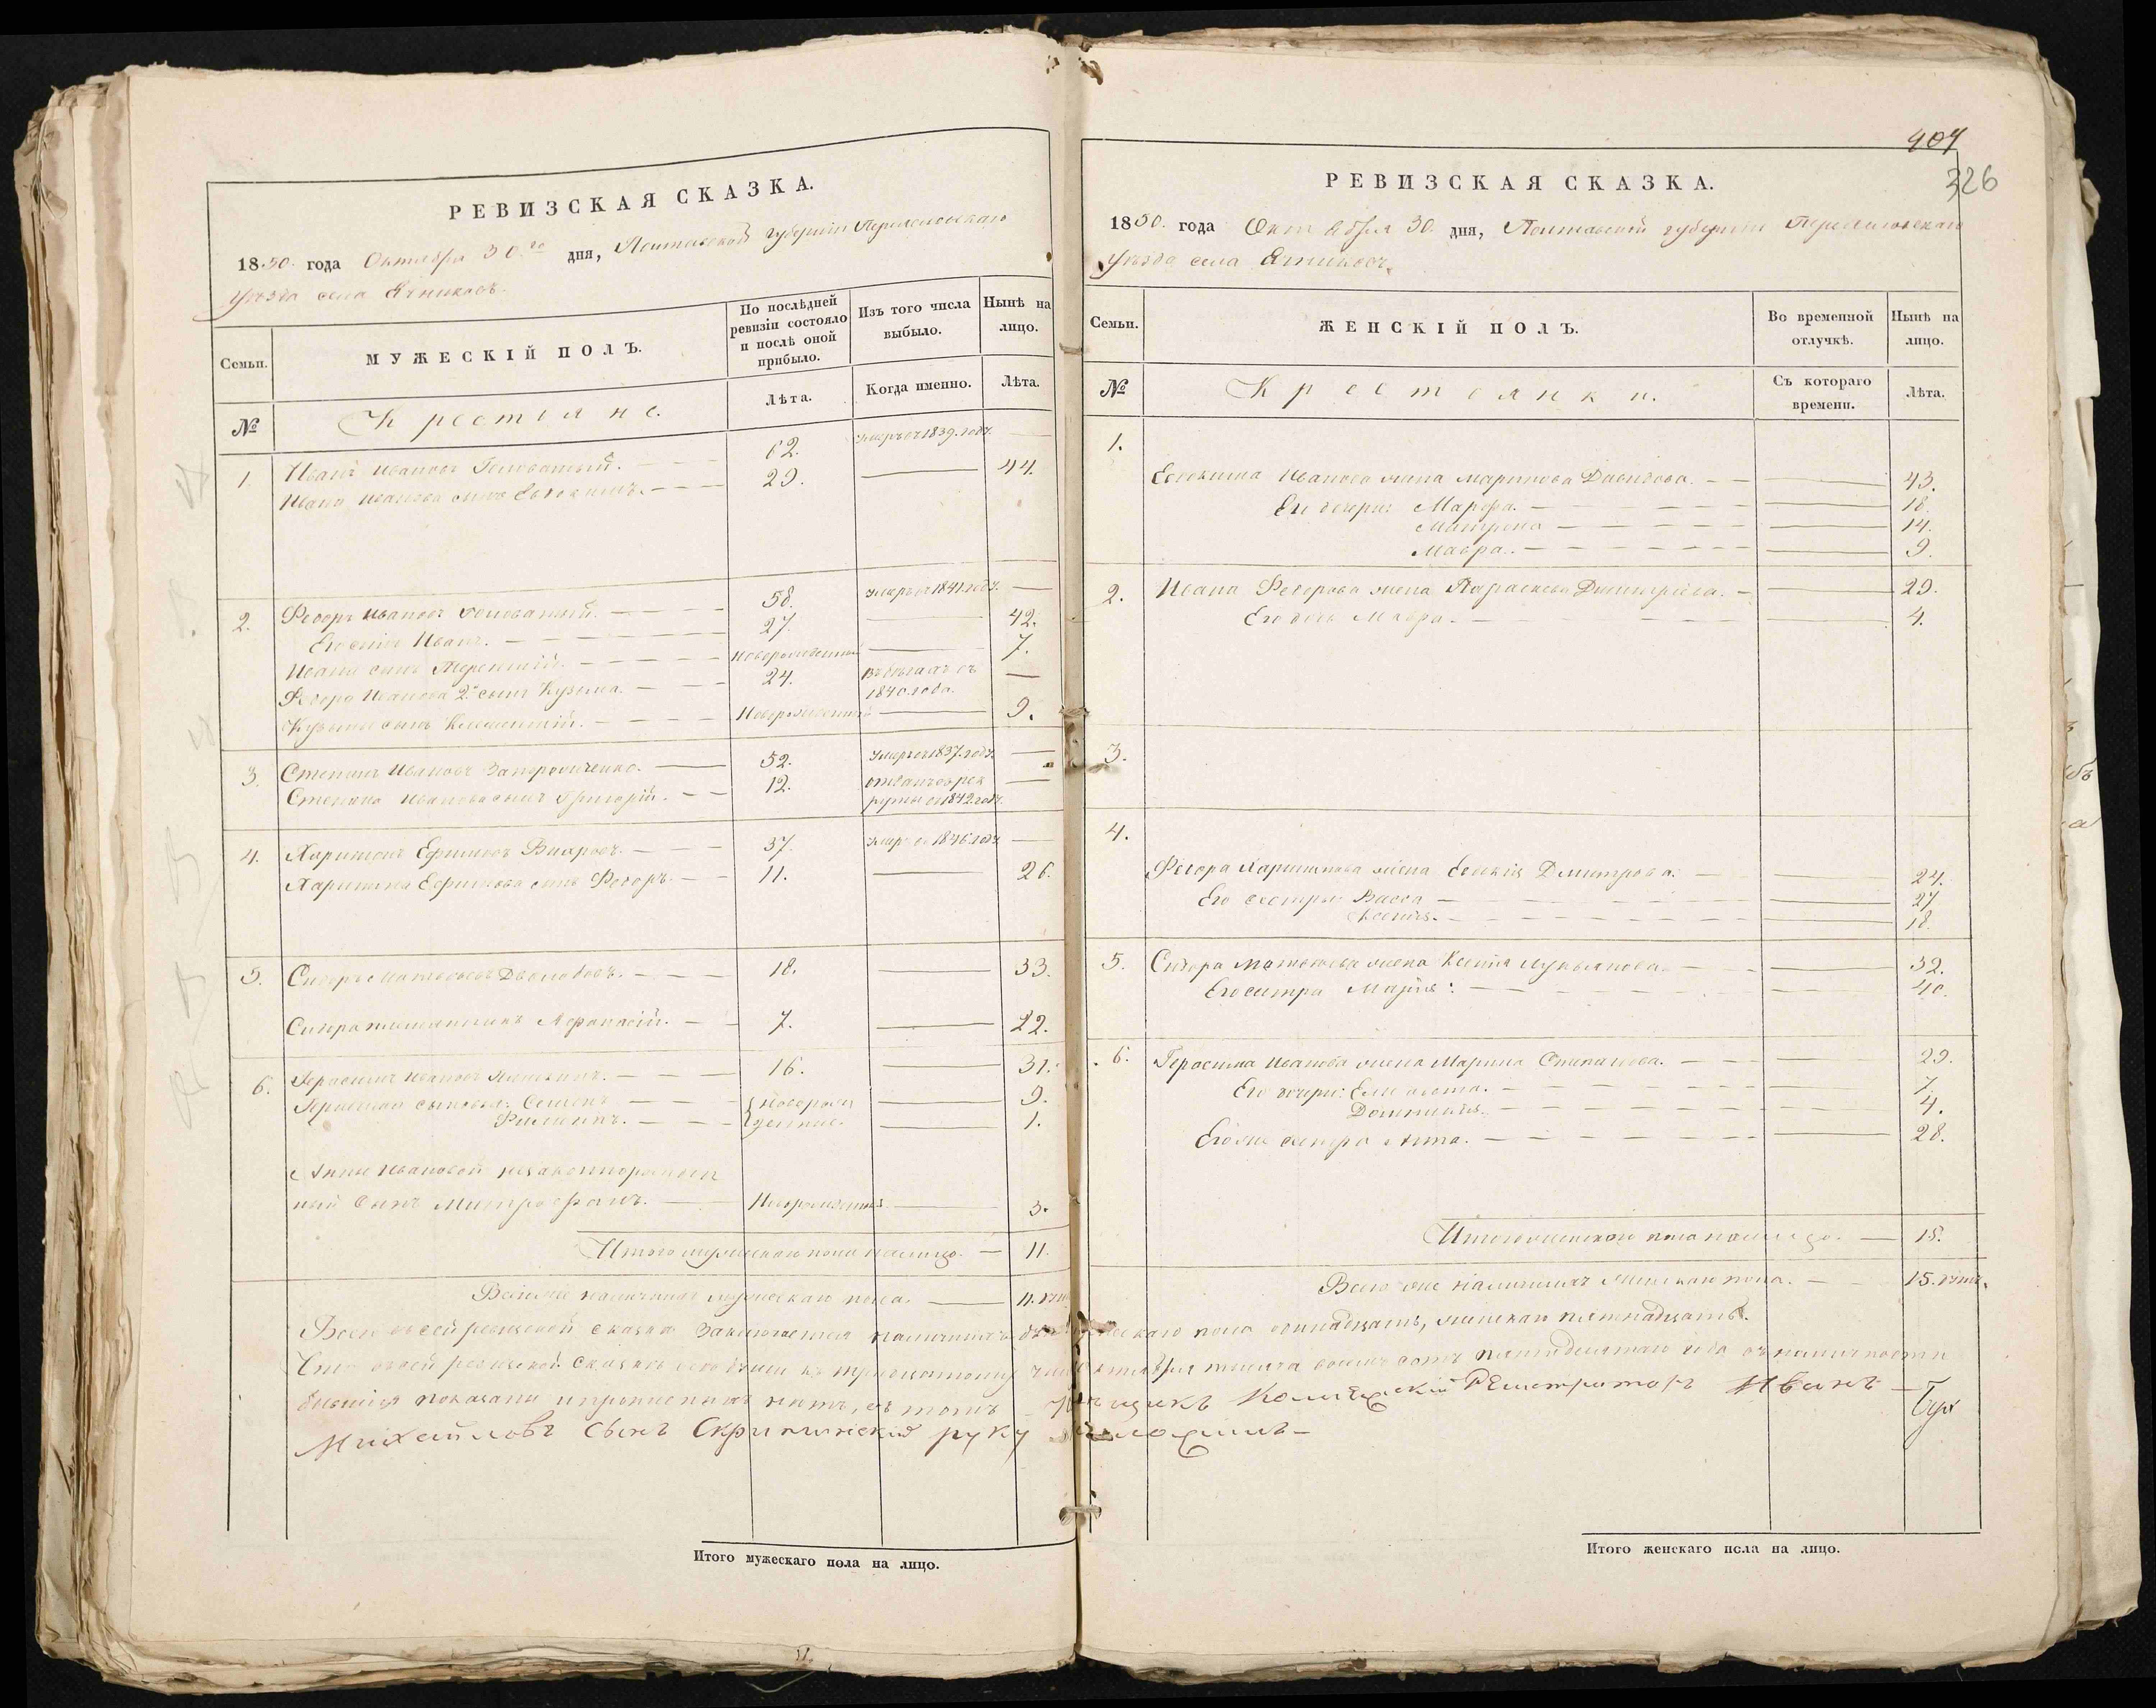 РЕВИЗСКАЯ СКАЗКА.
1850 года Октября 30го дня, Полтавской губернии Переяславскаго
уѣзда села Ячниковъ.
Семьи.
МУЖЕСКІЙ ПОЛЪ.
По послѣдней ревизіи состояло и послѣ оной прибыло.
Изъ того числа выбыло.
Нынѣ на лицо.
№
Крестьяне.
Лѣта.
Когда именно.
Лѣта.
1. Иванъ Ивановъ Головатый. 62. умеръ въ 1839. году. —
Ивана Иванова сынъ 29. — 44.
2. Федоръ Ивановъ Головатый. 58. умеръ въ 1841. году. —
Его сынъ Иванъ. 27. — 42.
Ивана сынъ Терентій. новорожденный — 7.
Федора Иванова 2й сынъ Кузьма. 24. въ бѣгахъ съ 1840. года. —
Кузьмы сынъ Климентій. Новорожденный — 9.
3. Степанъ Ивановъ 52. умеръ въ 1837. году. —
Степана Иванова сынъ Григорій. 12. отданъ въ рекруты въ 1842. году. —
4. Харитонъ Ефимовъ Вихровъ. 37. умеръ въ 1846. году. —
Харитона Ефимова сынъ Федоръ. 11. — 26.
5. Сидоръ Матвѣевъ 18. — 33.
Сидора Афанасій. 7. — 22.
6. Герасимъ Ивановъ 16. — 31.
Герасима сыновья: Семенъ. новорожденные — 9.
Филипъ. — 1.
Анны Ивановой незаконнорожден
ный сынъ Митрофанъ. Новорожденный — 3.
Итого мужескаго пола налицо. — 11.
Всего же наличныхъ мужескаго пола. — 11.
Всего въ сей ревизской сказкѣ заключается наличныхъ мужескаго пола одинадцать, женскаго пятнадцать.
Что въ сей ревизской сказкѣ всѣ души къ тридцатому числу октября тысяча восемь сотъ пятидесятаго года въ наличности
бывшія показаны и прописныхъ нѣтъ, въ томъ Колежскій Регистраторъ Иванъ
Михайловъ сынъ руку приложилъ —
Итого мужескаго пола на лицо.
404
326
РЕВИЗСКАЯ СКАЗКА.
1850. года Октября 30. дня, Полтавской губернии Переяславскаго
уѣзда села Ячниковъ.
Семьи.
ЖЕНСКІЙ ПОЛЪ.
Во временной отлучкѣ.
Нынѣ на лицо.
№
Крестьянки.
Съ котораго времени.
Лѣта.
1.
Иванова жена Давидова. — 43.
Его дочери: Марфа. — 18.
Матрона — 14.
Мавра. — 9.
2. Ивана Федорова жена Параскева Дмитріева. — 29.
Его дочь Мавра. — 4.
3.
4.
Федора Харитонова жена Дмитрова. — 24.
Его сестры: Васса — 27.
Ксенія. — 18.
5. Сидора Матвѣева жена Ксенія Лукьянова. — 32.
Его сестра Марія: — 40.
6. Герасима Иванова жена Марина Степанова. — 29.
Его дочери: — 7.
— 4.
Его же сестра Анна. — 28.
Итого женскаго пола налицо. — 15.
Всего же наличныхъ женскаго пола. — 15.
Итого женскаго пола на лицо.